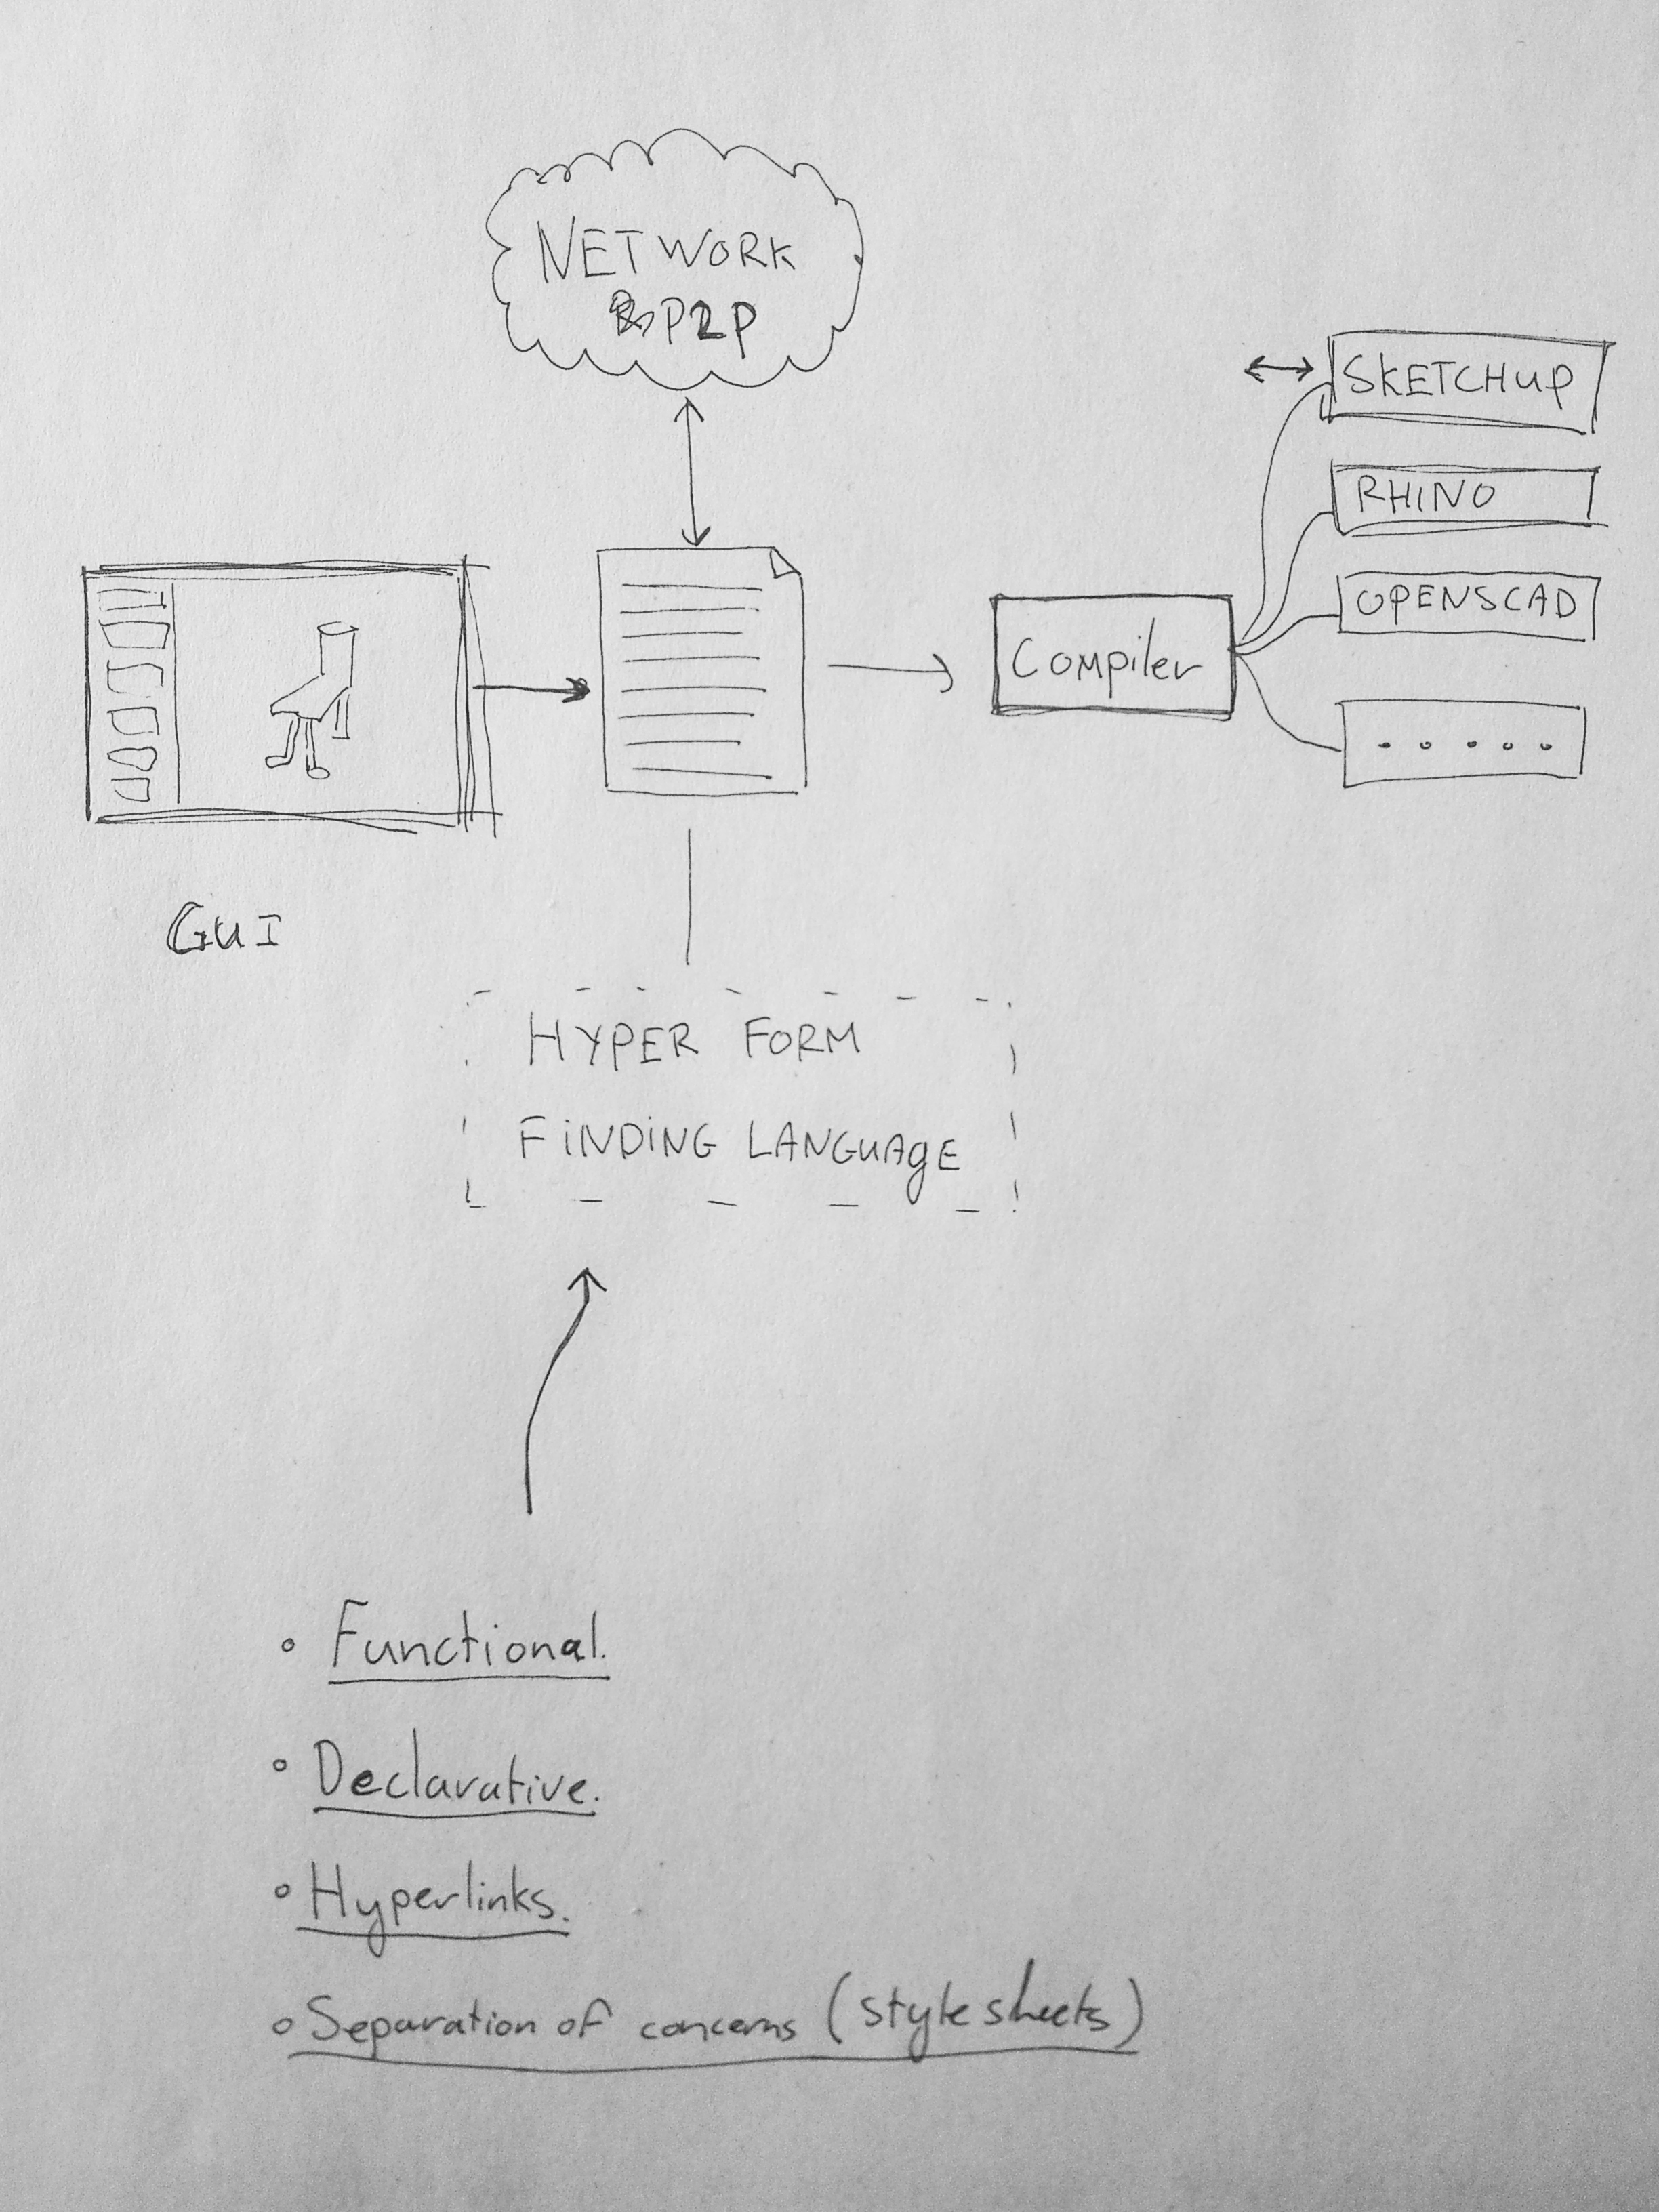 NETWORK
P2P
SKETCHUP
RHINO
OPENSCAD
.....
Compiler
GUI
HYPER FORM
FINDING LANGUAGE
• Functional.
• Declarative.
• Hyperlinks.
• Separation of concerns (style sheets)